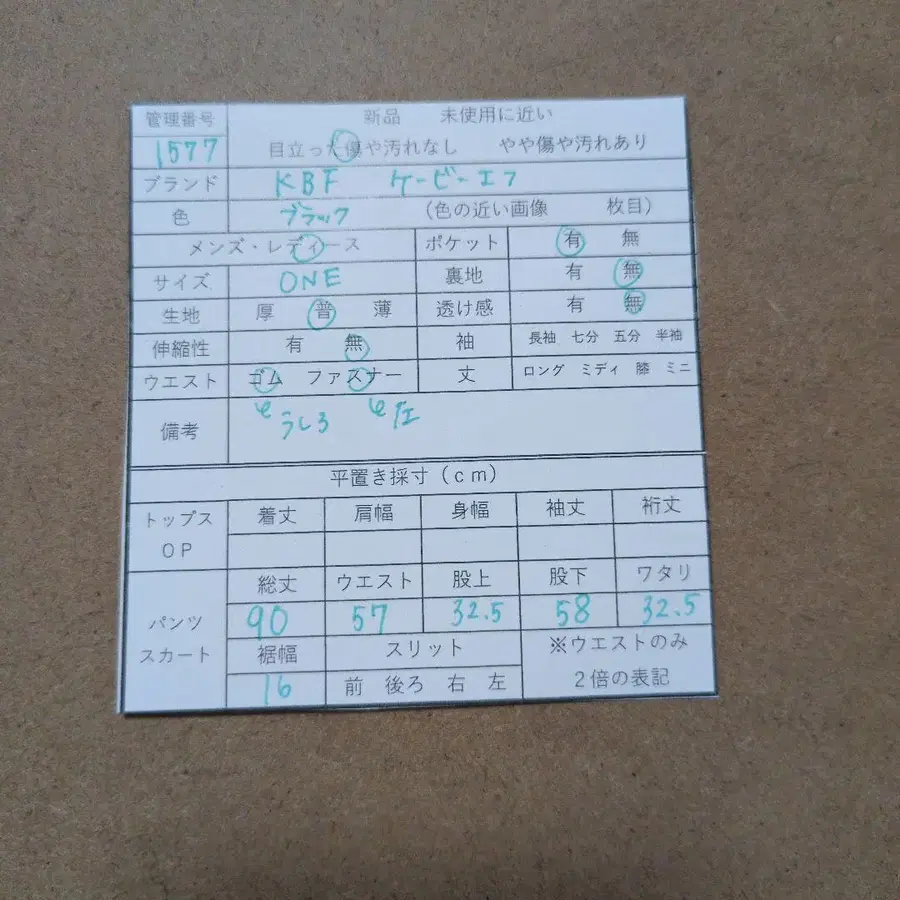 管理番号 新品 未使用に近い
1577 目立った傷や汚れなし やや傷や汚れあり
ブランド KBF ケービーエフ
色 ブラック (色の近い画像 枚目)
メンズ・レディース ポケット 有 無
サイズ ONE 裏地 有 無
生地 厚 普 薄 透け感 有 無
伸縮性 有 無 袖 長袖 七分 五分 半袖
ウエスト ゴム ファスナー 丈 ロング ミディ 膝 ミニ
備考 うしろ 左
平置き採寸(cm)
トップス OP 着丈 肩幅 身幅 袖丈 裄丈
パンツ スカート 総丈 ウエスト 股上 股下 ワタリ
90 57 32.5 58 32.5
裾幅 スリット ※ウエストのみ
16 前 後ろ 右 左 2倍の表記